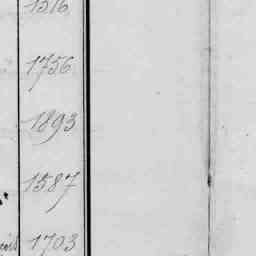 1516
1756
1893
1587
1703